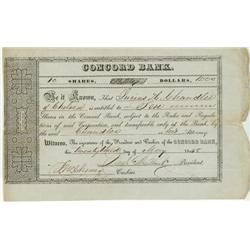 CONCORD BANK.
10 SHARES, DOLLARS, 1000
Be it Known, That Lucius H. Chandler
of Chelsea is entitled to Ten
Shares in the Concord Bank, subject to the Rules and Regula-
tions of said Corporation, and transferable only at the Bank, by
the said Chandler or his Attorney
Witness, The signatures of the President and Cashier of the CONCORD BANK,
this twenty third day of May 184
President.
Cashier